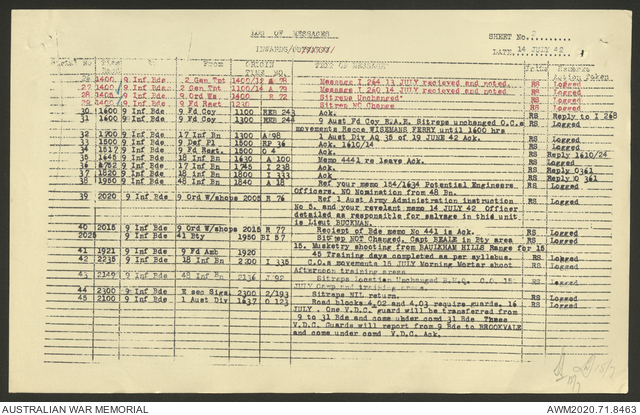 LOG OF MESSAGES
SHEET No. 2
INWARDS/OUTWARDS
DATE. 14 JULY 42
Serial No To From ORIGIN TIME NO. TEXT OF MESSAGE Remarks Action Taken
1400 9 Inf Bde 2 Gen Tnt 1400/12 A 78 Message I 264 13 JULY recieved and noted. RS Logged
27 1400 9 Inf Bde 2 Gen Tnt 1100/14 A 79 Message I 260 14 JULY recieved and noted. RS Logged
28 1400 9 Inf Bde 9 Ord Wk 1400 R 72 Sitreps Unchanged. RS Logged
29 1400 9 Inf Bde 9 Fd Regt 1230 Sitrep NO Change RS Logged
1600 9 Inf Bde 9 Fd Coy 1100 RER 243 Ack. RS Reply to I 268
31 1600 9 Inf Bde 9 Fd Coy 1300 RER 244 9 Aust Fd Coy R.A.E. Sitreps unchanged O.C.s RS Logged
movements Recce WISEMANS FERRY until 1600 hrs
32 1700 9 Inf Bde 17 Inf Bn 1300 A/98 1 Aust Div AQ 35 of 19 JUNE 42 Ack. RS Logged
33 1500 9 Inf Bde 9 Def Pl 1500 RP 36 Ack. 1610/14 RS Logged
34 1517 9 Inf Bde 9 Fd Regt. 1500 O 4 Ack. RS Reply 1610/24
35 1645 9 Inf Bde 18 Inf Bn 1630 A 100 Memo 4441 re leave Ack. RS Logged
36 1752 9 Inf Bde 17 Inf Bn 1745 I 238 Ack. RS Reply 0361
37 1820 9 Inf Bde 18 Inf Bn 1800 I 333 Ack RS Reply O 361
38 1950 9 Inf Bde 48 Inf Bn 1840 A 18 Ref your memo 154/1634 Potential Engineers RS Logged
Officers. NO Nomination from 48 Bn.
39 2020 9 Inf Bde 9 Ord W/shops 2005 R 76 Ref 1 Aust Army Administration instruction RS Logged
No 5. and your revelant memo 14 JULY 42 Officer
detailed as responsible for salvage in this unit
is Lieut BUCKMAN.
40 2015 9 Inf Bde 9 Ord W/shops 2015 R 77 Reciept of Bde memo No 441 is Ack. RS Logged
2025 9 Inf Bde 41 Bty 1950 BI 57 Sitrep NOT Changed. Capt BEALE in Bty area RS Logged
15. Musketry shooting from BAULKHAM HILLS Range for 15
41 1921 9 Inf Bde 9 Fd Amb 1920 45 Training days completed as per syllabus. RS Logged
42 2235 9 Inf Bde 18 Inf Bn 2200 I 335 C.O.s movements 15 JULY Morning Mortar shoot RS Logged
Afternoon training area
43 2149 9 Inf Bde 48 Inf Bn 2136 I 92 Sitreps Location Unchanged B.H.Q. C.O. 15 RS Logged
JULY Camp and training area
44 2300 9 Inf Bde E sec Sigs 2300 2/193 Sitreps NIL return. RS Logged
45 2100 9 Inf Bde 1 Aust Div 1637 O 123 Road blocks 4.02 and 4.03 require guards. 16 RS Logged
JULY . One V.D.C. guard will be transferred from
9 to 31 Bde and come under comd 31 Bde These
V.D.C. Guards will report from 9 Bde to BROOKVALE
and come under comd V.D.C. Ack.
AUSTRALIAN WAR MEMORIAL
AWM2020.71.8463